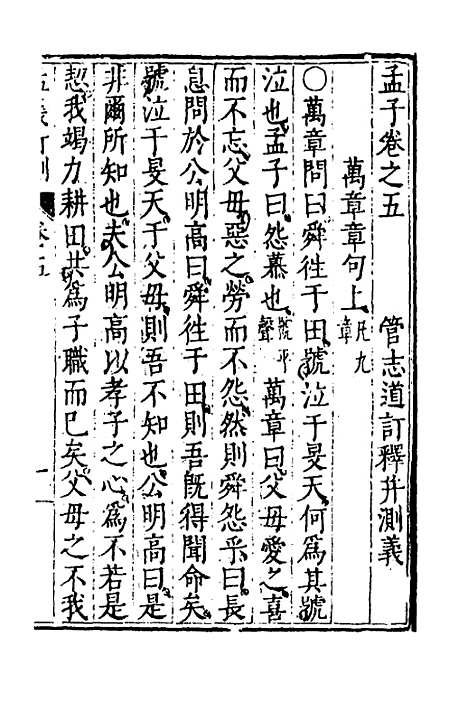 孟子卷之五　管志道訂釋并測義
萬章章句上凡九章
○萬章問曰舜徃于田號泣于旻天何爲其號
泣也孟子曰怨慕也號平聲萬章曰父母愛之喜
而不忘父母惡之勞而不怨然則舜怨乎曰長
息問於公明高曰舜徃于田則吾旣得聞命矣
號泣于旻天于父母則吾不知也公明高曰是
非爾所知也夫公明高以孝子之心爲不若是
恝我竭力耕田共爲子職而已矣父母之不我
卷五
一